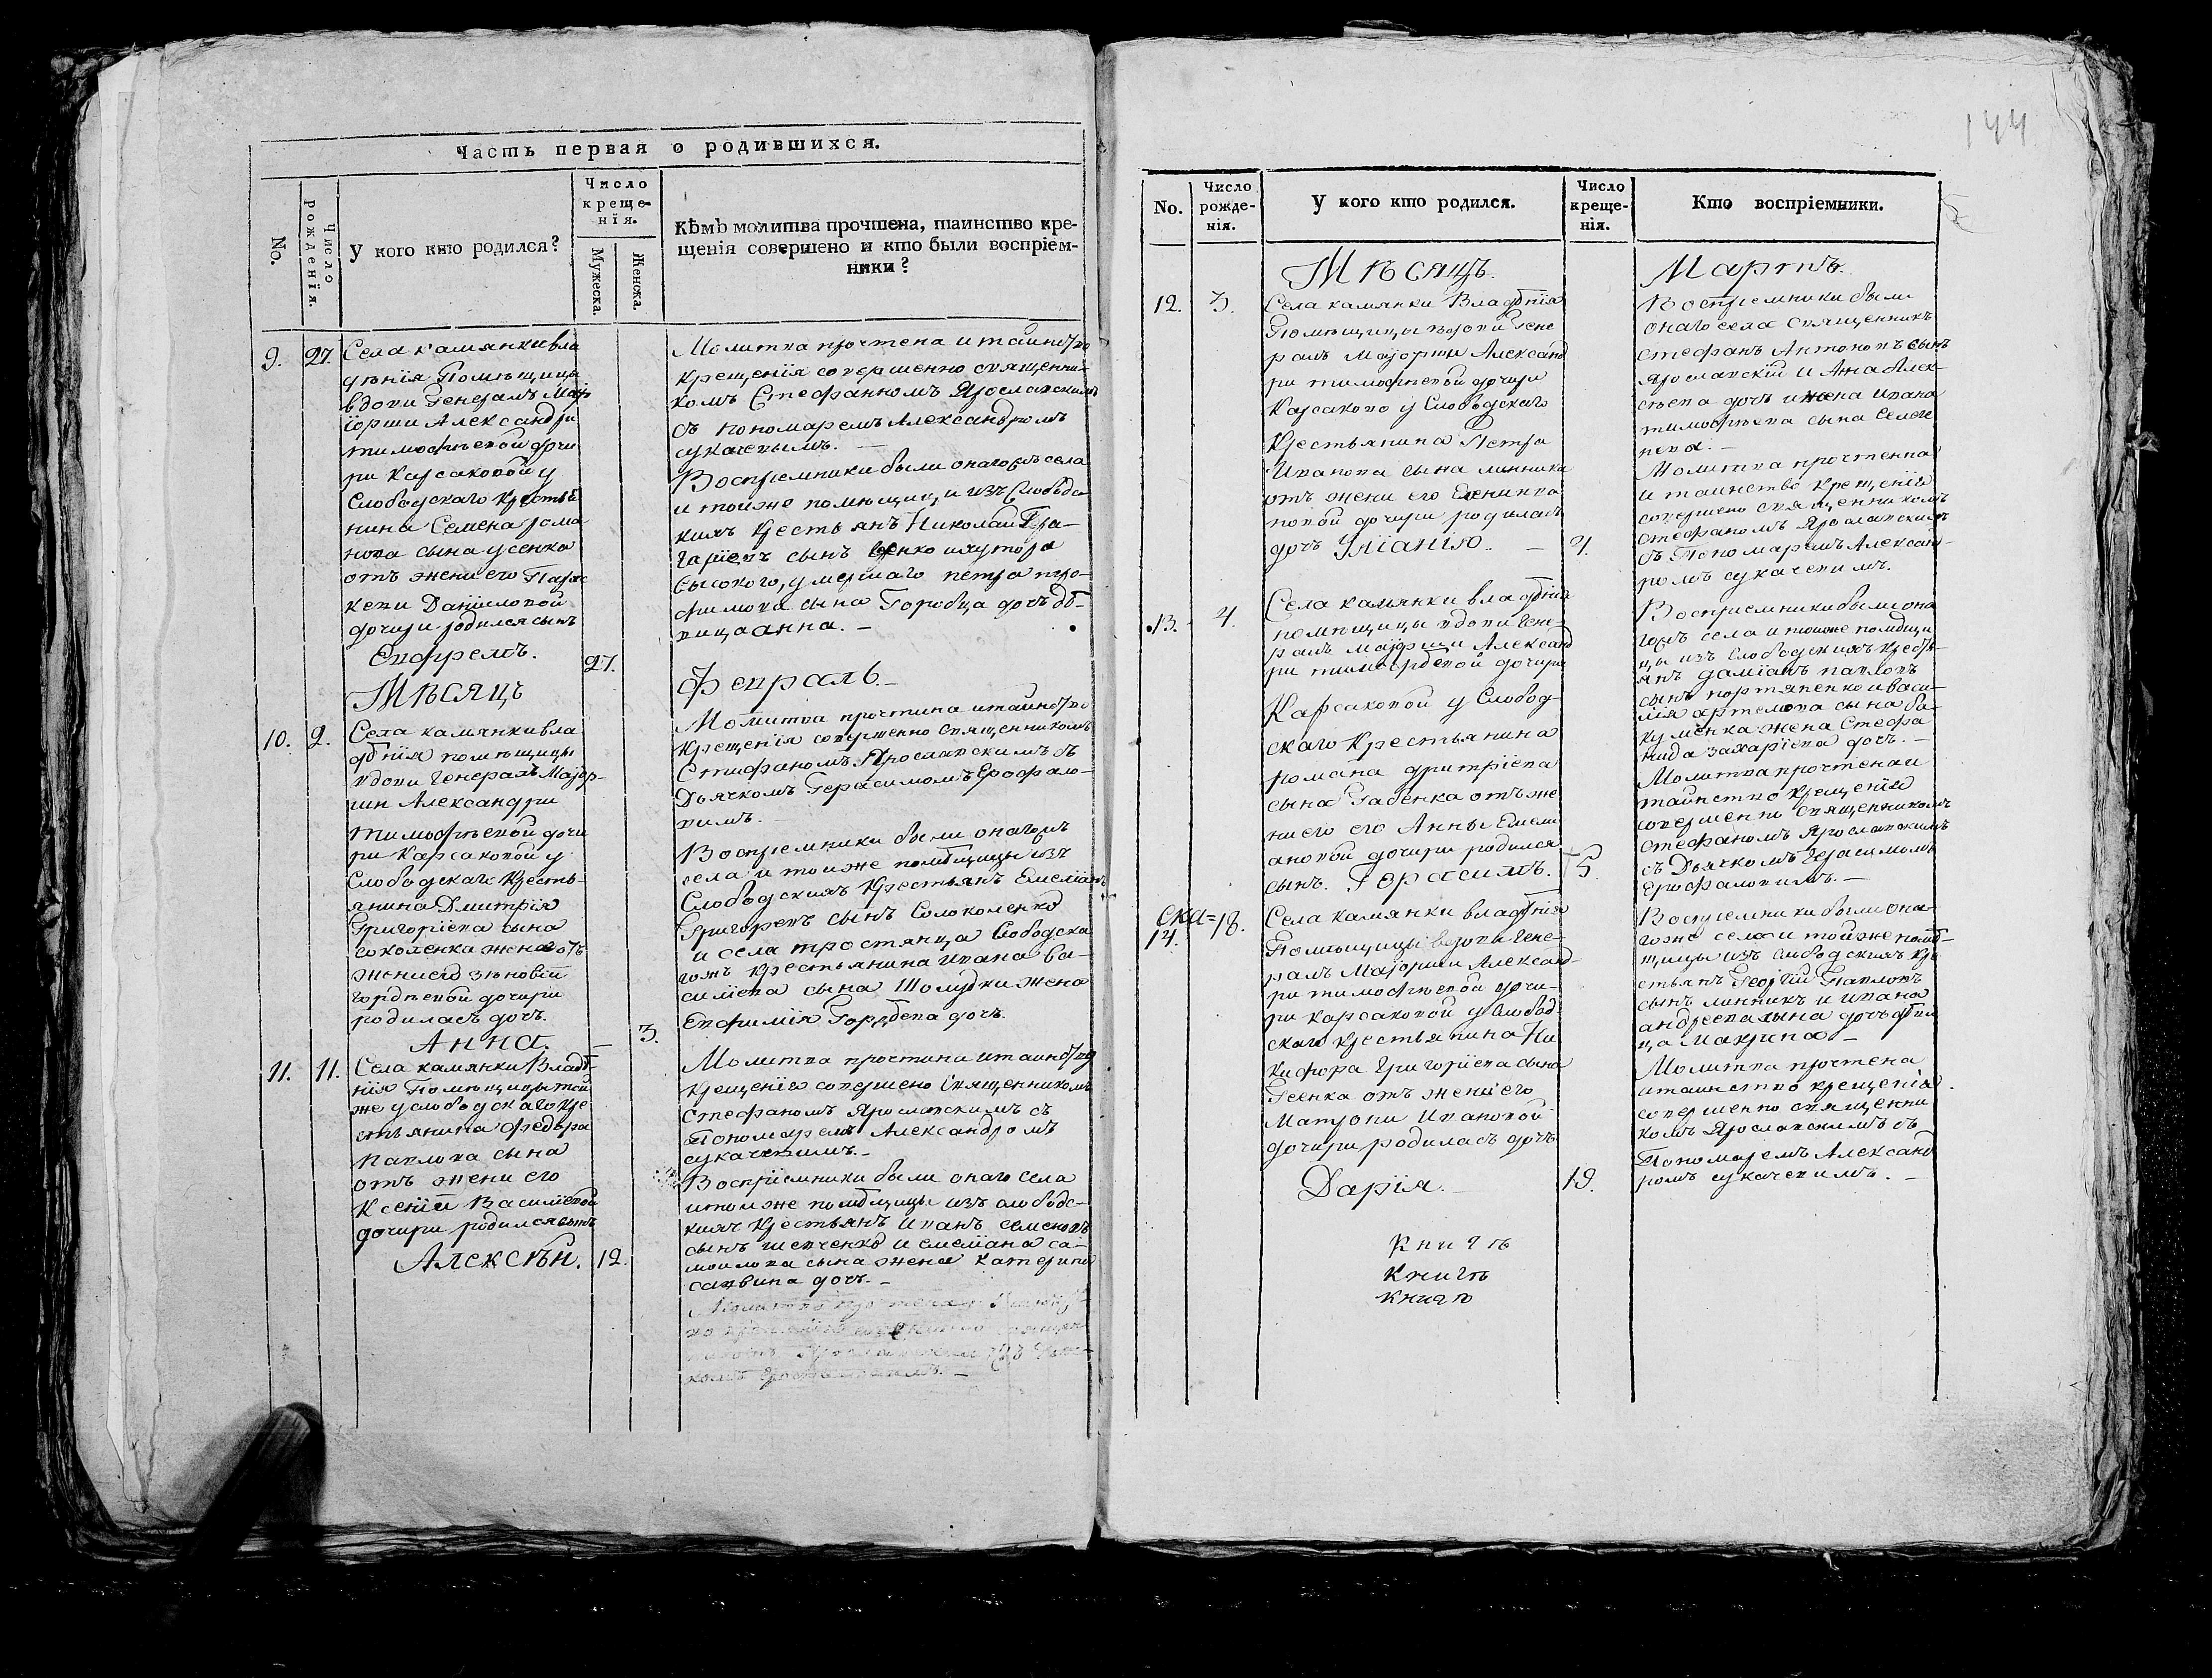 Часть первая о родившихся.
No.
Число рожденїя.
У кого кто родился?
Число
креще-
нїя.
Мужеска.
Женска.
Кѣмъ молитва прочтена, таинство кре-
щенія совершено и кто были воспріем-
ники?
9.
27.
Села камянки вла
дѣнія Помѣщицы
вдови Генералъ Маї
іорши Александри
тимофѣевой дочи
ри Карсаковой у
Слободскаго Крестья
нина Семена рома
нова сына усенка
отъ жени его Парас
кеви Даніиловой
дочири родился сынъ
Евфремъ.
27.
Молитва прочтена и таинство
крещенія совершенно священни-
комъ Стефанномъ Ярославскимъ
съ пономаремъ Александромъ
сукачевымъ. —
Воспріемники были онагожъ села
и тоиже помѣщици изъ Слободс
кихъ крестьянъ Николай
сынъ
умершаго петра тро-
фимова сына Горобца дочъ дѣ-
вица анна. —
Мѣсяцъ
Февраль. —
10.
2.
Села камянки вла
дѣнія помѣщицы
вдови Генералъ Маіор-
ши Александри
тимофѣевой дочи
ри Карсаковой у
Слободскаго Кресть-
янина Дмитрія
Григоріева сына
соколенка жена отъ
жени его зѣновіи
гордѣевой дочири
родилась дочъ.
Анна. —
3.
Молитва прочтина и таинство
Крещенія совершенно священникомъ
Стифаномъ Ярославскимъ съ
Дьячкомъ Герасимомъ Ерофало-
вимъ. —
Воспріемники были онагожъ
села и тоиже помѣщицы изъ
Слободскихъ Крестьянъ Емеліанъ
Григоревъ сынъ Солоколенко
и села тростянца Слободска
гожъ крестьянина Ивана ва-
силіева сына Шолудки жена
Евфимія Гордѣева дочъ.
11.
11.
Села камянки Владѣ-
нія Помѣщицы той
же у слободскаго кре
стьянина Федора
Павлова сына
отъ жени его
Ксеніи Василіевой
дочири родился сынъ
Алексѣй.
12.
Молитва прочтини и таинство
крещенія совершено Священникомъ
Стефаномъ Ярославскимъ съ
Пономаремъ Александромъ
сукачевимъ. —
Воспріемники были онаго села
и тоиже помѣщицы изъ слободс-
кихъ Крестьянъ Иванъ семеновъ
сынъ шевченко и емеліана са-
моилова сына жена Катерина
саввина дочъ. —
144
No.
Число
рожде-
нія.
У кого кто родился.
Число
креще-
нія.
Кто воспріемники.
Мѣсяцъ.
Мартъ.
12.
3.
Села камянки Владѣнія
Помѣщицы вдови Гене
ралъ Маіорши Александ
ри тимофѣевой дочири
Карсаково у Слободскаго
Крестьянина Петра
Иванова сына линника
отъ жени его Елени ива
новой дочири родилась
дочъ Уліанія. —
4.
Воспріемники были
онаго села священникъ
стефанъ Антоновъ сынъ
Ярославскій и Анна Алек-
сѣева дочъ и жена Ивана
тимофѣева сына
Молитва прочтенна
и таинство крещенія
совершено священникомъ
стефаномъ Ярославскимъ
съ Пономаремъ Александ-
ромъ сукачевимъ.
13.
4.
Села камянки владѣнія
помѣщицы вдови Гене-
ралъ маіорши Александ
ри тимофѣевой дочири
Карсаковой у Слобод-
скаго Крестьянина
романа дмитріева
сына Габенка отъ же
ни его его Анны Емели
ановой дочири родился
сынъ. Герасимъ.
5.
Воспріемники были она
гожъ села и тоиже помѣщи
цы изъ слободскихъ крестья-
янъ даміанъ павловъ
сынъ портяненко и васи-
лія артемова сына ба-
куменка жена Стефа
нида захаріева дочъ. —
Молитва прочтена и
таинство крещенія
совершенно священникомъ
стефаномъ Ярославскимъ
съ Дьячкомъ Герасимомъ
Ерофаловимъ. —
14.
18.
Села камянки владѣнія
Помѣщицы вдови Гене-
ралъ Маіорши Александ-
ри тимофѣевой дочи-
ри Карсаковой у Слобод-
скаго крестьянина Ни
кифора Григоріева сына
Гсенка отъ жени его
Матрони Ивановой
дочири родилась дочъ
Дарія. —
19.
Воспріемники были она-
гоже села и тойже помѣ-
щицы изъ слободскихъ кре
стьянъ Георгій Павловъ
сынъ линникъ и ивана
андреева сына дочъ дѣви
ца Макрина —
Молитва прочтена
и таинство крещенія
совершенно священни
комъ Ярославскимъ съ
Пономаремъ Александ
ромъ сукачевимъ. —
Книгъ
Книгъ
Книгъ